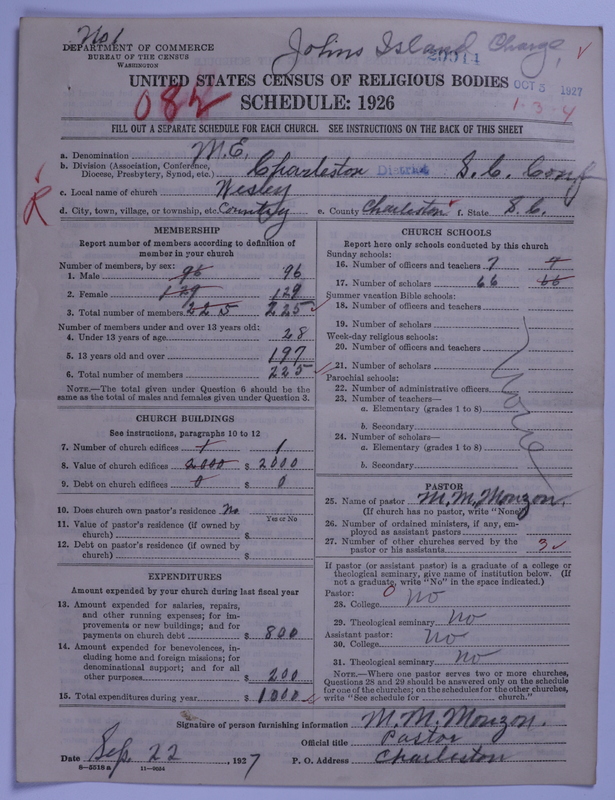 No 1
Johns Island Charge,
DEPARTMENT OF COMMERCE
BUREAU OF THE CENSUS
WASHINGTON
OCT 5 1927
1-3-4
UNITED STATES CENSUS OF RELIGIOUS BODIES
082
SCHEDULE: 1926
FILL OUT A SEPARATE SCHEDULE FOR EACH CHURCH. SEE INSTRUCTIONS ON THE BACK OF THIS SHEET
a. Denomination M.E.
b. Division (Association, Conference, Diocese, Presbytery, Synod, etc.) Charleston District S.C. Conf
c. Local name of church Wesley
R
d. City, town, village, or township, etc. Country e. County Charleston f. State S.C.
MEMBERSHIP
Report number of members according to definition of
member in your church
Number of members, by sex:
1. Male 96 96
2. Female 129 129
3. Total number of members 225 225
Number of members under and over 13 years old:
4. Under 13 years of age 28
5. 13 years old and over 197
6. Total number of members 225
NOTE.—The total given under Question 6 should be the
same as the total of males and females given under Question 3.
CHURCH BUILDINGS
See instructions, paragraphs 10 to 12
7. Number of church edifices 1 1
8. Value of church edifices 2000 $ 2000
9. Debt on church edifices 0 $ 0
10. Does church own pastor's residence? No
Yes or No
11. Value of pastor's residence (if owned by
church) $
12. Debt on pastor's residence (if owned by
church) $
EXPENDITURES
Amount expended by your church during last fiscal year
13. Amount expended for salaries, repairs,
and other running expenses; for im-
provements or new buildings; and for
payments on church debt $ 800
14. Amount expended for benevolences, in-
cluding home and foreign missions; for
denominational support; and for all
other purposes $ 200
15. Total expenditures during year $ 1000
CHURCH SCHOOLS
Report here only schools conducted by this church
Sunday schools:
16. Number of officers and teachers 7
17. Number of scholars 66 66
Summer vacation Bible schools:
18. Number of officers and teachers
19. Number of scholars
Week-day religious schools:
20. Number of officers and teachers
21. Number of scholars
Parochial schools:
22. Number of administrative officers
23. Number of teachers—
a. Elementary (grades 1 to 8)
b. Secondary
24. Number of scholars—
a. Elementary (grades 1 to 8)
b. Secondary
None
PASTOR
25. Name of pastor M. M. Mouzon.
(If church has no pastor, write "None")
26. Number of ordained ministers, if any, em-
ployed as assistant pastors
27. Number of other churches served by the
pastor or his assistants 3
If pastor (or assistant pastor) is a graduate of a college or
theological seminary, give name of institution below. (If
not a graduate, write "No" in the space indicated.)
Pastor: 0
28. College No
29. Theological seminary No
Assistant pastor:
30. College No
31. Theological seminary No
NOTE.—Where one pastor serves two or more churches,
Questions 28 and 29 should be answered only on the schedule
for one of the churches; on the schedules for the other churches,
write "See schedule for church."
Signature of person furnishing information M. M. Mouzon.
Official title Pastor
Date Sep. 22, 1927 P. O. Address Charleston
8-5518 a 11-9034